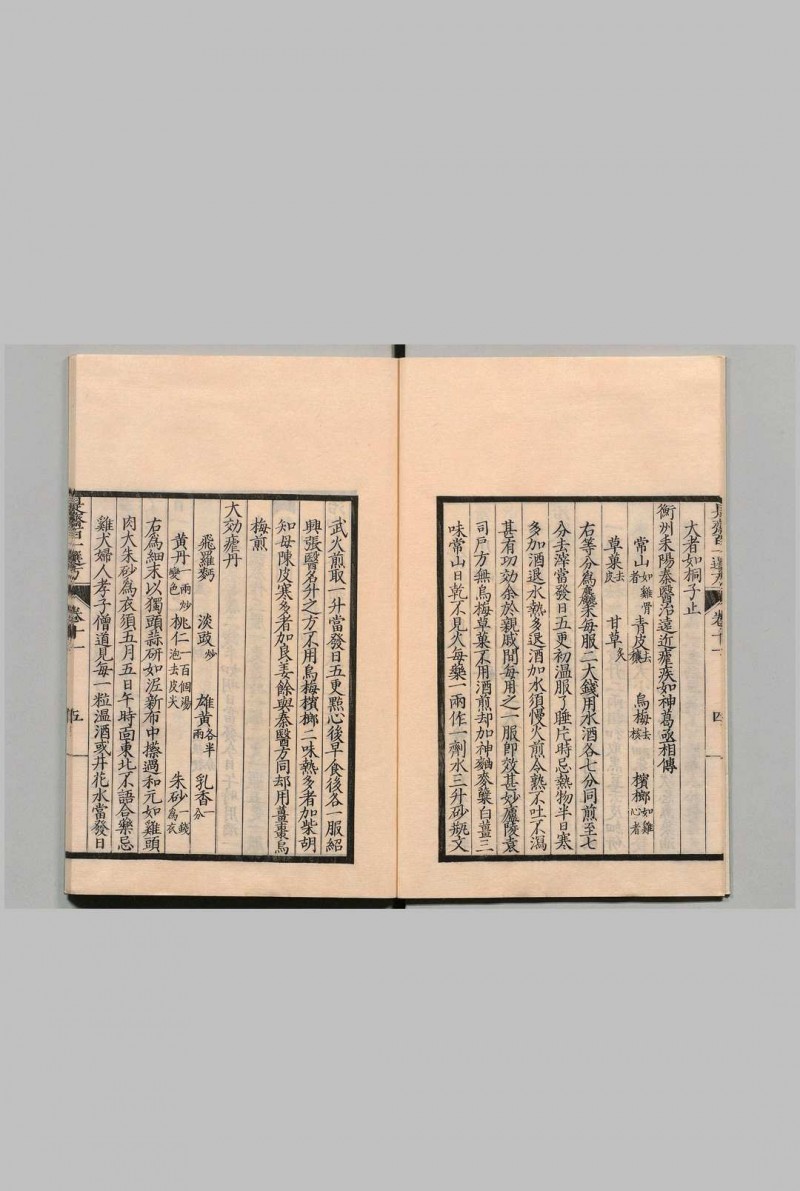 大者如桐子止
衡州耒陽秦醫治遠近瘧疾如神葛丞相傳
常山如雞骨者 青皮去穰 烏梅去核 檳榔如雞心者
草菓去皮 甘草炙
右等分為麤末每服二大錢用水酒各七分同煎至七
分去滓當發日五更初溫服了睡片時忌熱物半日寒
多加酒退水熱多退酒加水須慢火煎令熟不吐不瀉
甚有功効余於親戚間每用之一服即效甚妙廬陵袁
司戶方無烏梅草菓不用酒煎却加神麯麥糵白薑三
味常山日乾不見火每藥一兩作一劑水三升砂瓶文
四
武火煎取一升當發日五更點心後早食後各一服紹
興張醫名升之方不用烏梅檳榔二味熱多者加柴胡
知母陳皮寒多者加良姜餘與秦醫方同却用薑棗烏
梅煎
大効瘧丹
飛羅麪 淡豉炒 雄黃各半兩 乳香一分
黃丹一兩炒變色 桃仁一百個湯泡去皮尖 朱砂一錢為衣
右為細末以獨頭蒜研如泥新布中搽過和元如雞頭
肉大朱砂為衣須五月五日午時面東北不語合藥忌
雞犬婦人孝子僧道見每一粒溫酒或井花水當發日
卷十一 五